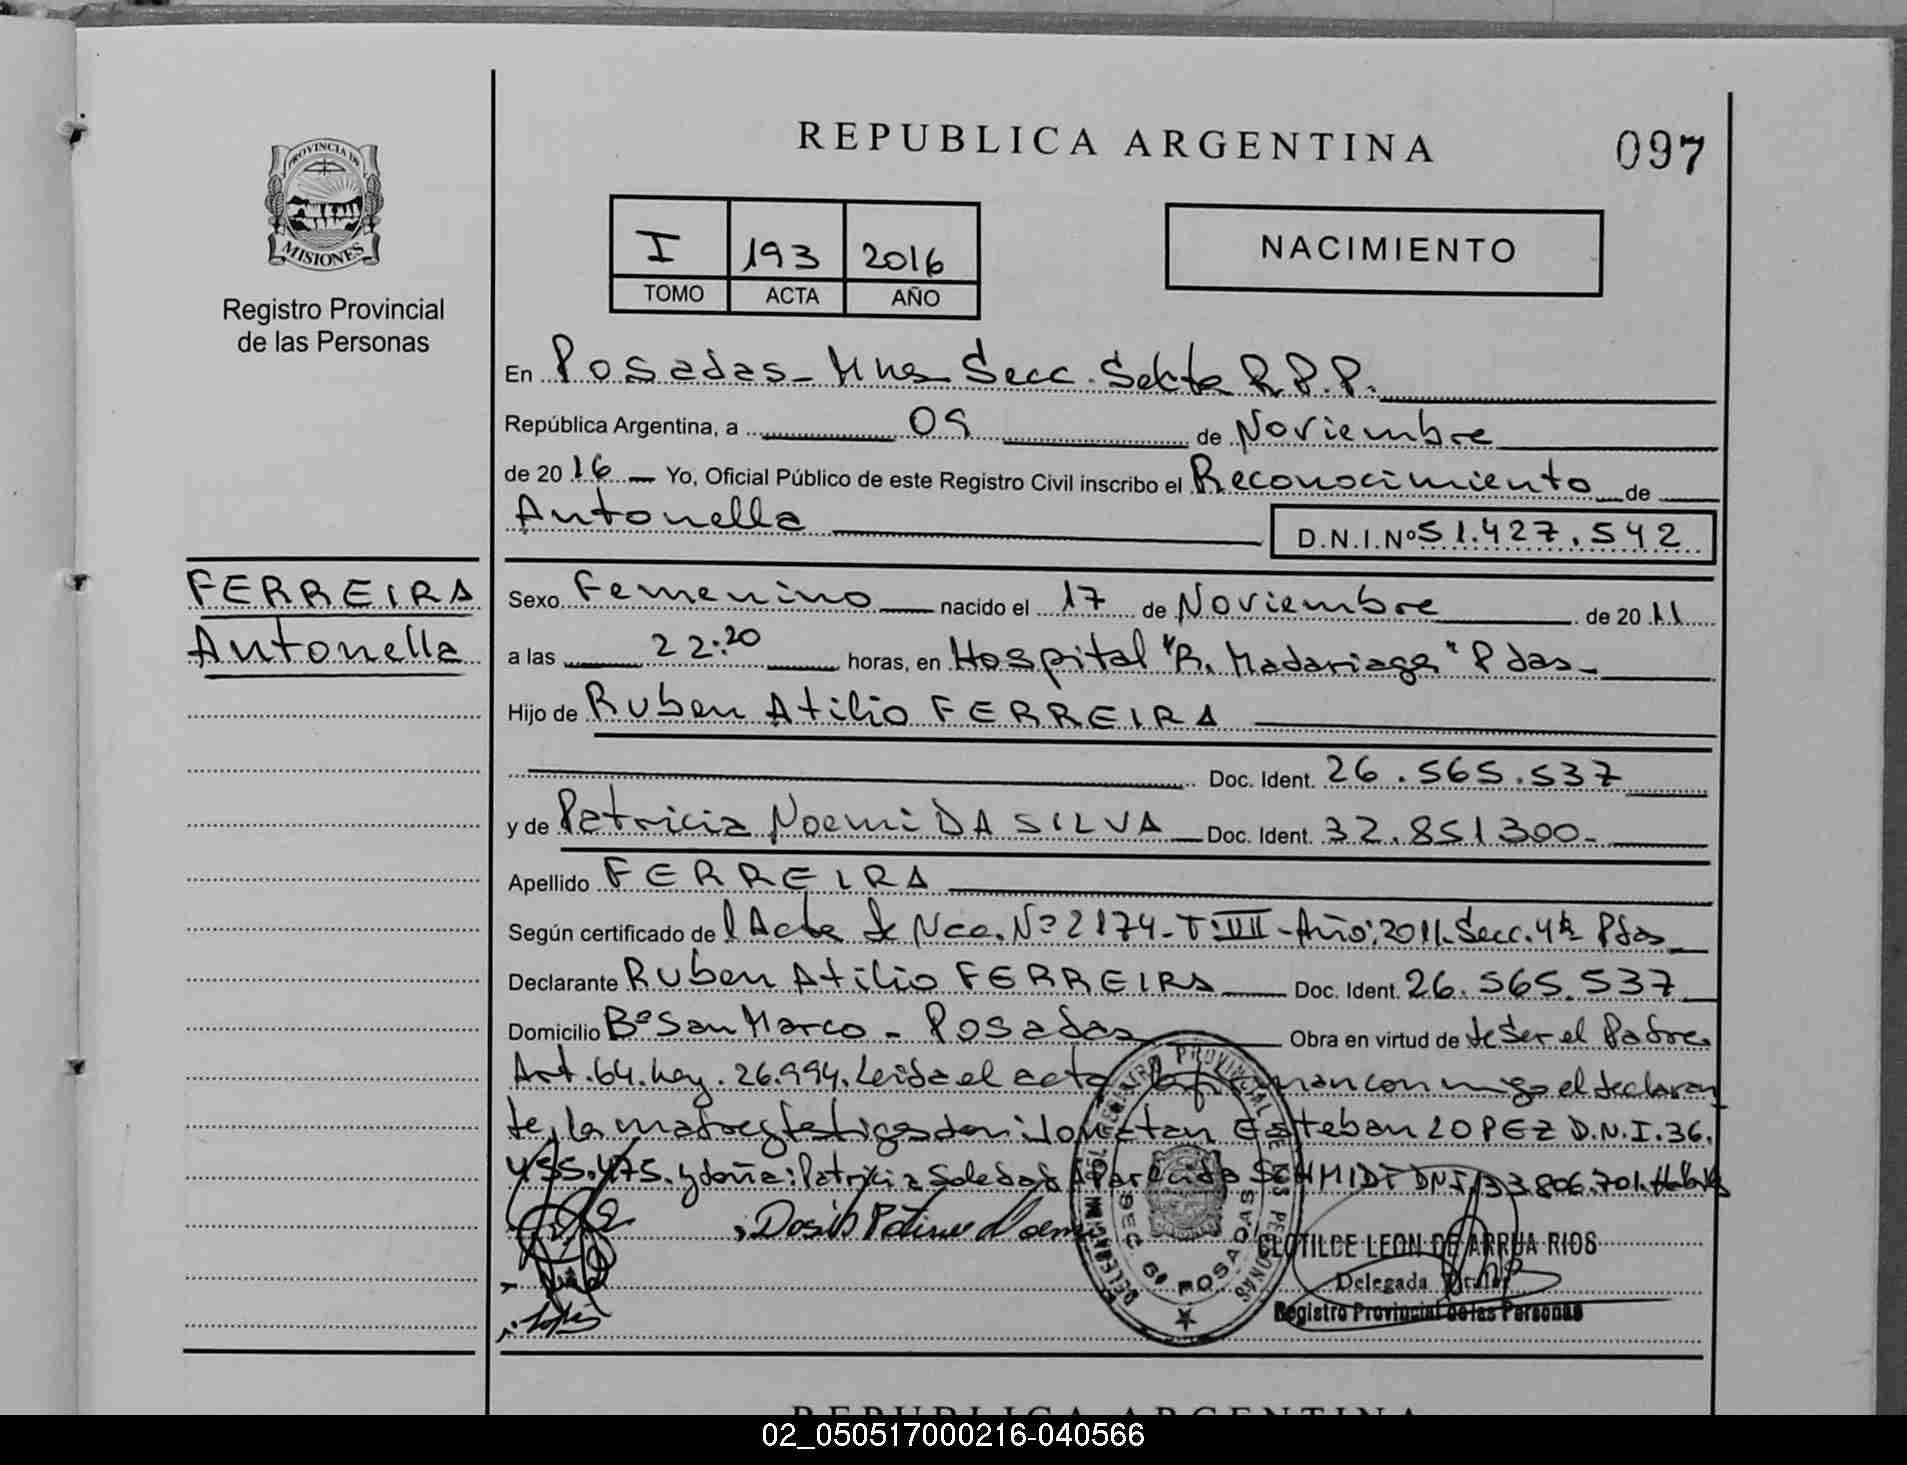 REPUBLICA ARGENTINA
097
PROVINCIA DE
MISIONES
Registro Provincial
de las Personas
I 193 2016
TOMO ACTA AÑO
NACIMIENTO
En Posadas - Mnes Secc. Sexta R.P.P.
República Argentina, a 09 de Noviembre
de 2016 Yo, Oficial Público de este Registro Civil inscribo el Reconocimiento de
Antonella D.N.I.Nº 51.427.542
FERREIRA
Antonella
Sexo Femenino nacido el 17 de Noviembre de 2011
a las 22:20 horas, en Hospital "R. Madariaga" Pdas-
Hijo de Ruben Atilio FERREIRA
Doc. Ident. 26.565.537
y de Patricia Noemi DA SILVA Doc. Ident. 32.851300-
Apellido FERREIRA
Según certificado de l Acta de Nac. Nº 2174-T:III-Año:2011.Secc.4ta Pdas
Declarante Ruben Atilio FERREIRA Doc. Ident. 26.565.537
Domicilio Bº San Marco - Posadas Obra en virtud de de ser el Padre.
Art. 64. Ley. 26.994. Leida el acta la firman conmigo el declaran
te, la madre y testigos don: Jonatan Esteban LOPEZ D.N.I. 36.
455.475. y doña: Patricia Soledad Aparecida SCHMIDT DNI. 33.806.701.
DELEGACION DEL REGISTRO PROVINCIAL DE LAS PERSONAS
SECC 6ª POSADAS
CLOTILDE LEON DE ARRUA RIOS
Delegada Titular
Registro Provincial de las Personas
REPUBLICA ARGENTINA
02_050517000216-040566